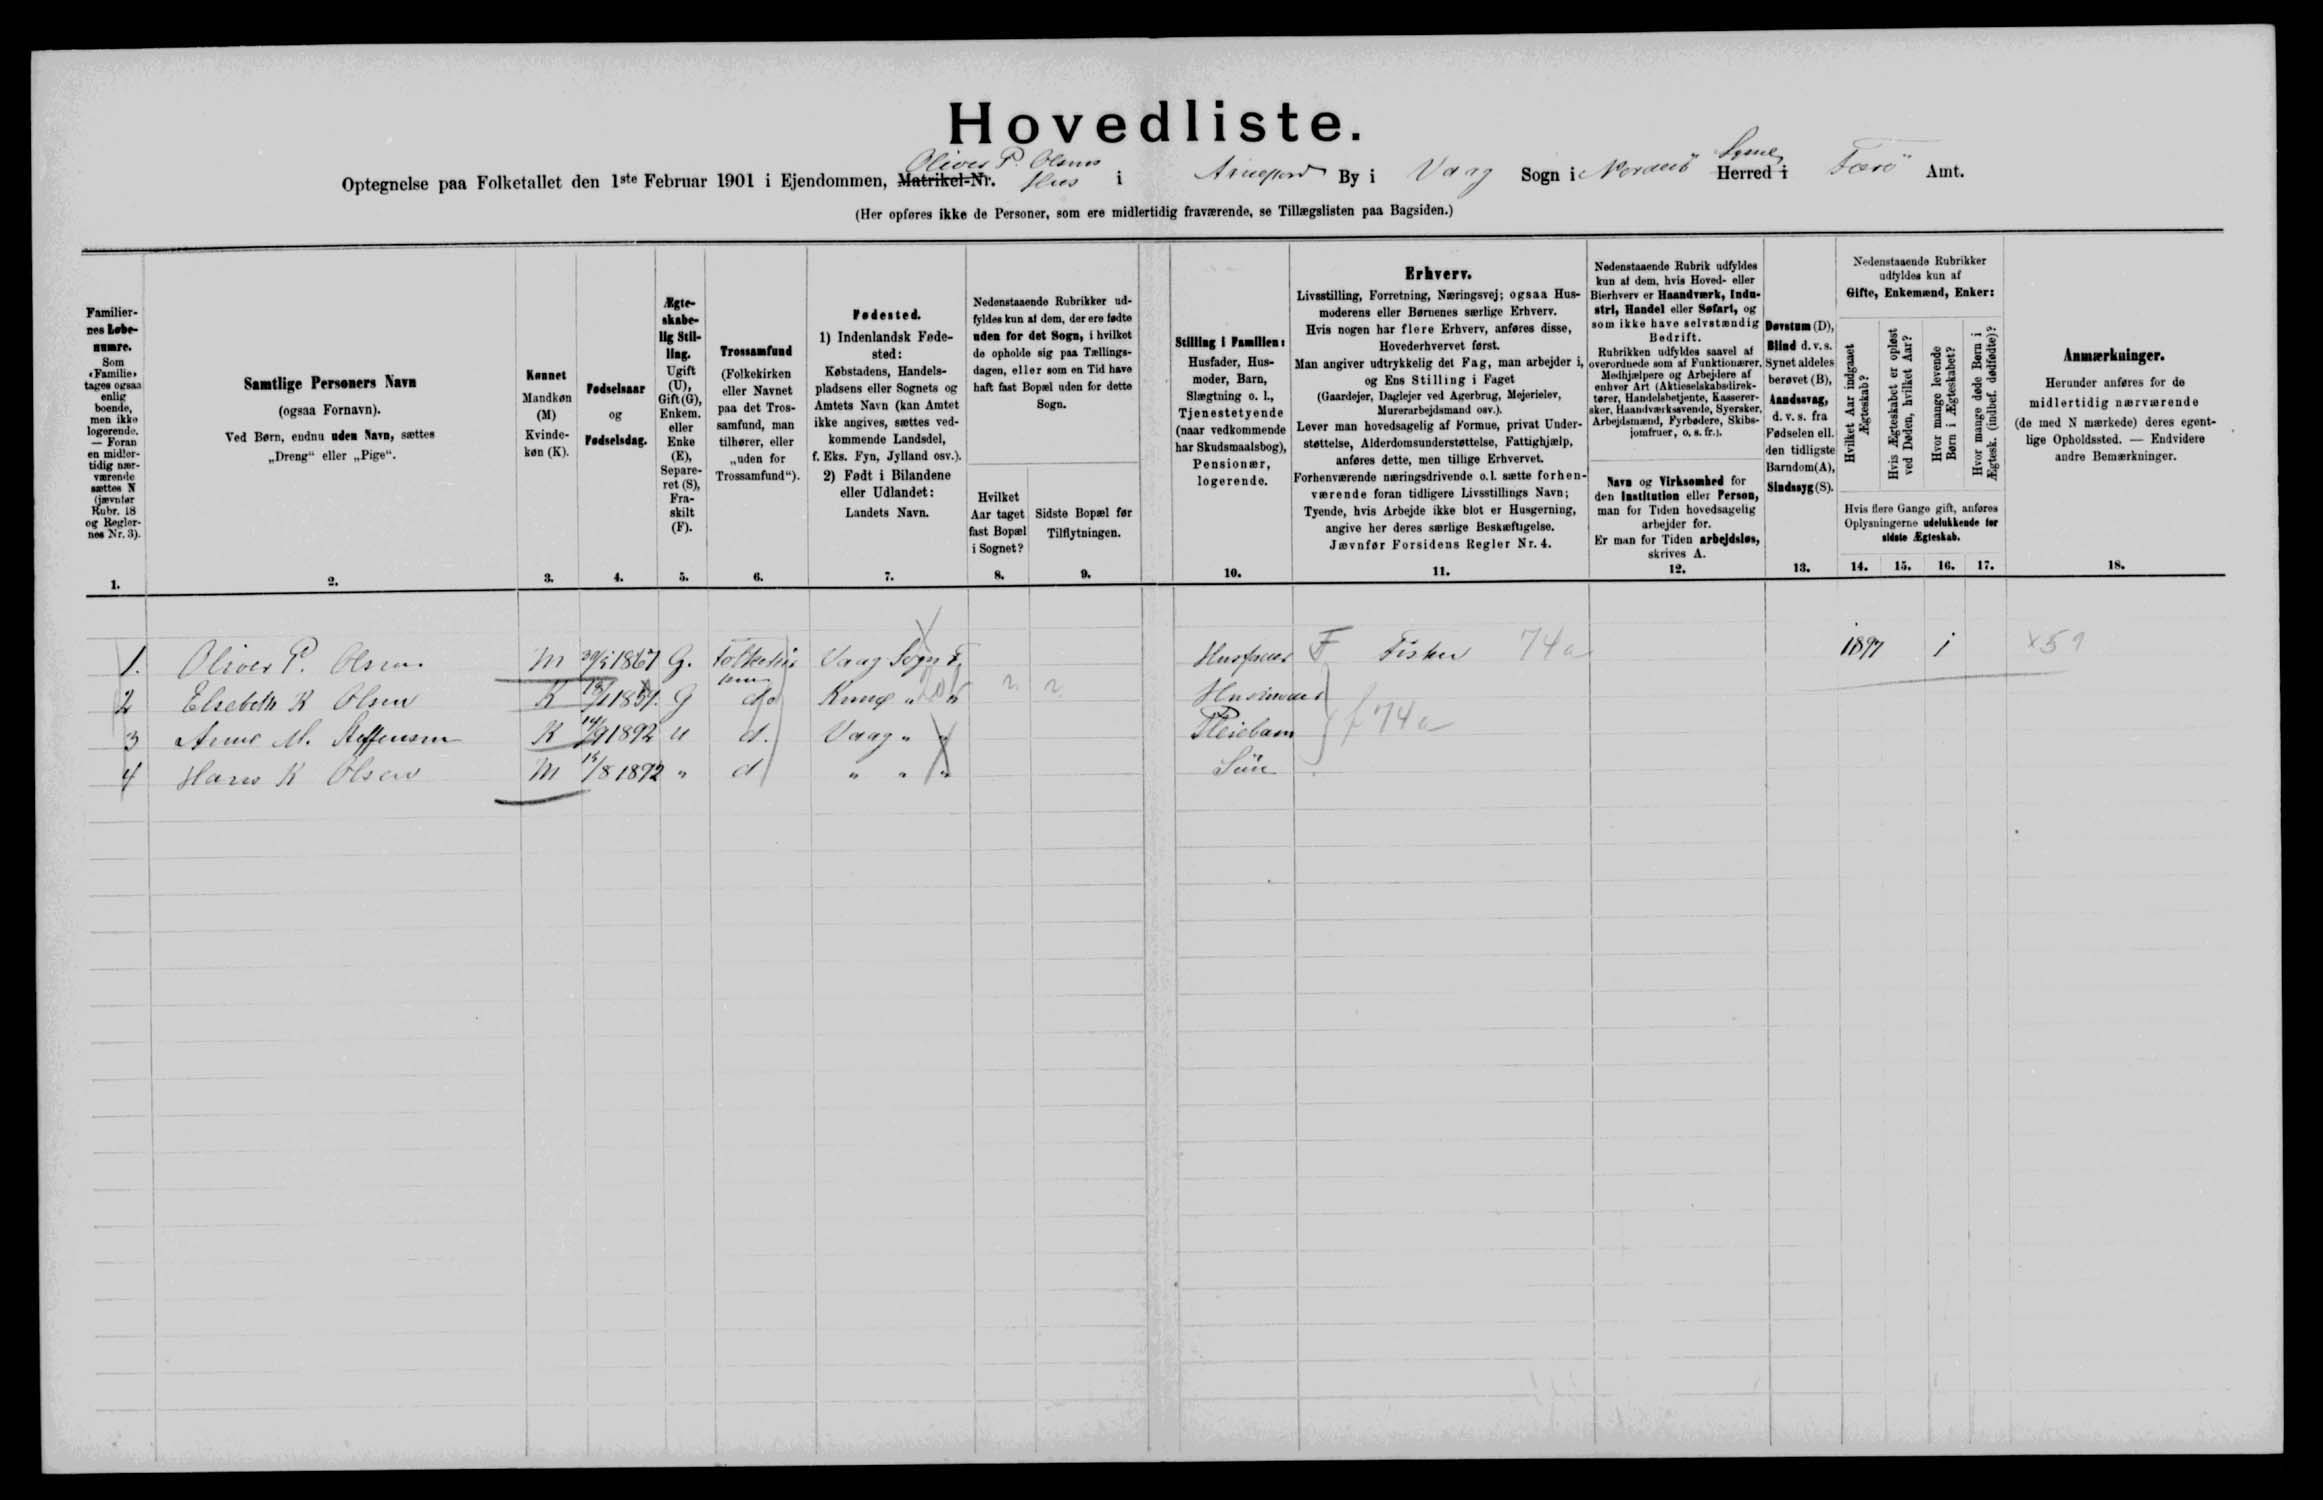 Hovedliste.
Oliver P. Olsens Syssel
Optegnelse paa Folketallet den 1ste Februar 1901 i Ejendommen, Matrikel-Nr. Hus i Arnefjord By i Vaag Sogn i Norderö Herred i Færö Amt.
(Her opføres ikke de Personer, som ere midlertidig fraværende, se Tillægslisten paa Bagsiden.)
Familier-
nes Løbe-
numre.
Som
«Familie»
tages ogsaa
enlig
boende,
men ikke
logerende.
— Foran
en midler-
tidig nær-
værende
sættes N
(jævnfør
Rubr. 18
og Regler-
nes Nr. 3).
1.
Samtlige Personers Navn
(ogsaa Fornavn).
Ved Børn, endnu uden Navn, sættes
„Dreng“ eller „Pige“.
2.
Kønnet
Mandkøn
(M)
Kvinde-
køn (K).
3.
Fødselsaar
og
Fødselsdag.
4.
Ægte-
skabe-
lig Stil-
ling.
Ugift
(U),
Gift (G),
Enkem.
eller
Enke
(E),
Separe-
ret (S),
Fra-
skilt
(F).
5.
Trossamfund
(Folkekirken
eller Navnet
paa det Tros-
samfund, man
tilhører, eller
„uden for
Trossamfund“).
6.
Fødested.
1) Indenlandsk Føde-
sted:
Købstadens, Handels-
pladsens eller Sognets og
Amtets Navn (kan Amtet
ikke angives, sættes ved-
kommende Landsdel,
f. Eks. Fyn, Jylland osv.).
2) Født i Bilandene
eller Udlandet:
Landets Navn.
7.
Nedenstaaende Rubrikker ud-
fyldes kun af dem, der ere fødte
uden for det Sogn, i hvilket
de opholde sig paa Tællings-
dagen, eller som en Tid have
haft fast Bopæl uden for dette
Sogn.
Hvilket
Aar taget
fast Bopæl
i Sognet?
8.
Sidste Bopæl før
Tilflytningen.
9.
Stilling i Familien:
Husfader, Hus-
moder, Barn,
Slægtning o. l.,
Tjenestetyende
(naar vedkommende
har Skudsmaalsbog),
Pensionær,
logerende.
10.
Erhverv.
Livsstilling, Forretning, Næringsvej; ogsaa Hus-
moderens eller Børnenes særlige Erhverv.
Hvis nogen har flere Erhverv, anføres disse,
Hovederhvervet først.
Man angiver udtrykkelig det Fag, man arbejder i,
og Ens Stilling i Faget
(Gaardejer, Daglejer ved Agerbrug, Mejerielev,
Murerarbejdsmand osv.).
Lever man hovedsagelig af Formue, privat Under-
støttelse, Alderdomsunderstøttelse, Fattighjælp,
anføres dette, men tillige Erhvervet.
Forhenværende næringsdrivende o. l. sætte forhen-
værende foran tidligere Livsstillings Navn;
Tyende, hvis Arbejde ikke blot er Husgerning,
angive her deres særlige Beskæftigelse.
Jævnfør Forsidens Regler Nr. 4.
11.
Nedenstaaende Rubrik udfyldes
kun af dem, hvis Hoved- eller
Bierhverv er Haandværk, Indu-
stri, Handel eller Søfart, og
som ikke have selvstændig
Bedrift.
Rubrikken udfyldes saavel af
overordnede som af Funktionærer,
Medhjælpere og Arbejdere af
enhver Art (Aktieselskabsdirek-
tører, Handelsbetjente, Kasserer-
sker, Haandværkssvende, Syersker,
Arbejdsmænd, Fyrbødere, Skibs-
jomfruer, o. s. fr.).
Navn og Virksomhed for
den Institution eller Person,
man for Tiden hovedsagelig
arbejder for.
Er man for Tiden arbejdsløs,
skrives A.
12.
Døvstum (D),
Blind d. v. s.
Synet aldeles
berøvet (B),
Aandssvag,
d. v. s. fra
Fødselen ell.
den tidligste
Barndom (A),
Sindssyg (S).
13.
Nedenstaaende Rubrikker
udfyldes kun af
Gifte, Enkemænd, Enker:
Hvilket Aar indgaaet
Ægteskab?
Hvis Ægteskabet er opløst
ved Døden, hvilket Aar?
Hvor mange levende
Børn i Ægteskabet?
Hvor mange døde Børn i
Ægtesk. (indbef. dødfødte)?
Hvis flere Gange gift, anføres
Oplysningerne udelukkende for
sidste Ægteskab.
14. 15. 16. 17.
Anmærkninger.
Herunder anføres for de
midlertidig nærværende
(de med N mærkede) deres egent-
lige Opholdssted. — Endvidere
andre Bemærkninger.
18.
1. Oliver P. Olsen M 1867 G. Folkekir Vaag Sogn F. Husfader F Fisker 74a 1897 1
ken
2 Elsebeth K Olsen K G do Kunø " " Husmoder
3 Anne M. Steffensen K 14/9 1892 U d. Vaag " " Pleiebarn f 74a
4 Hans K Olsen M 15/8 1892 " d " " " Sön